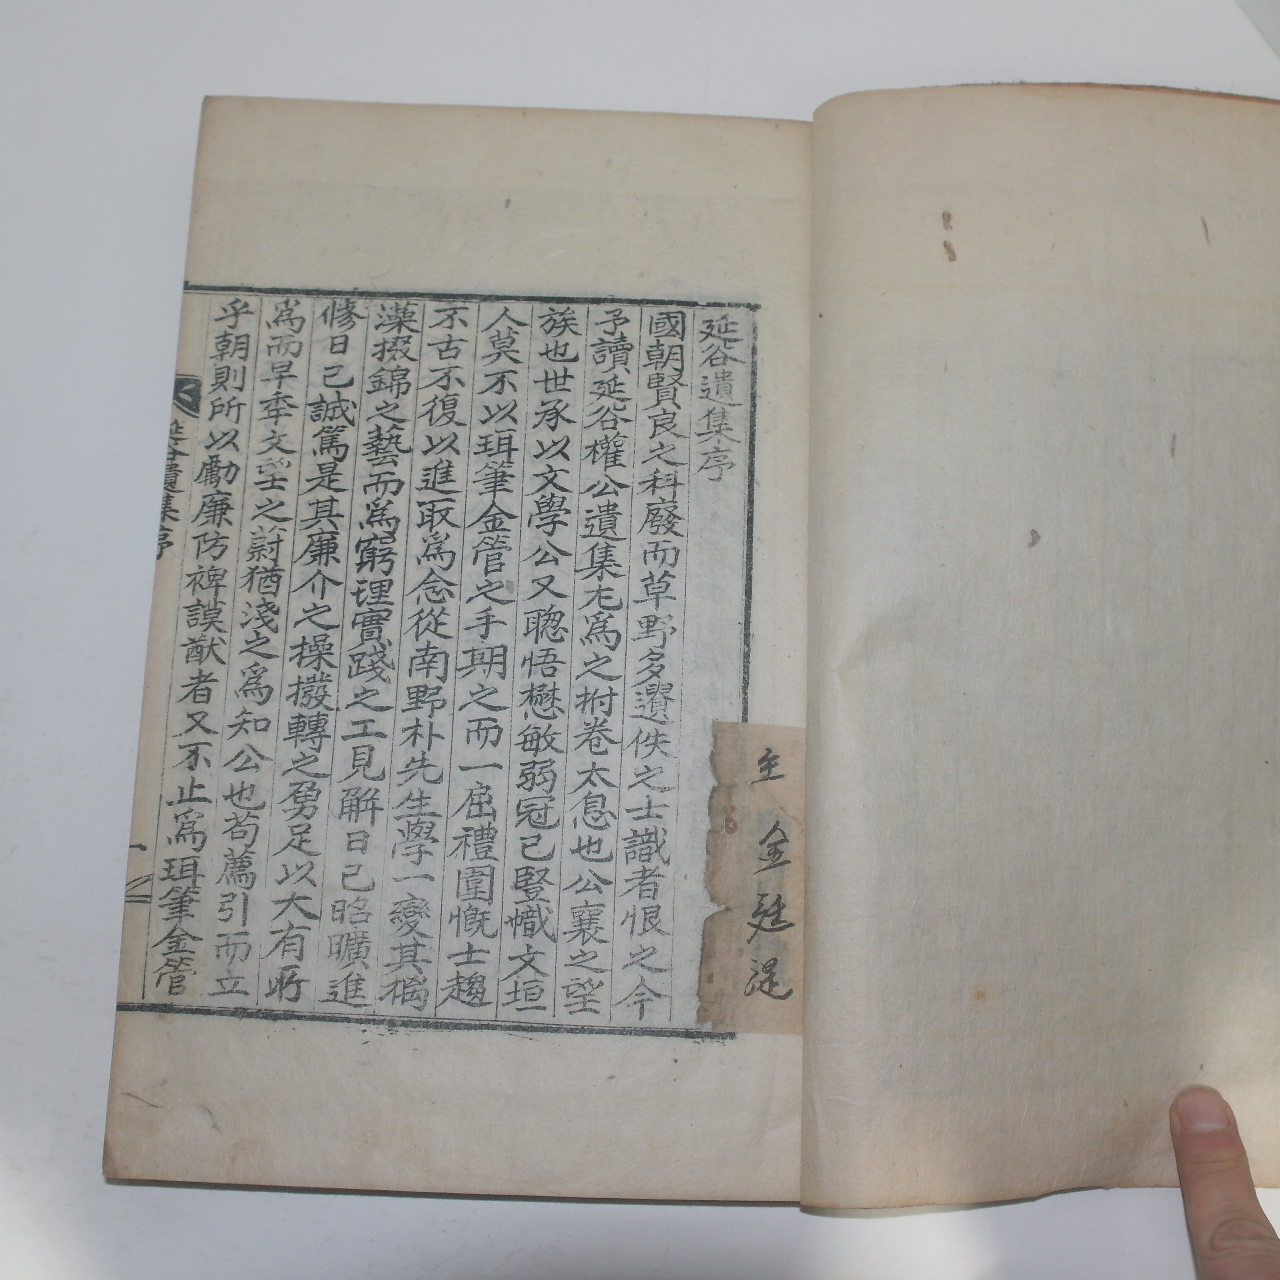 延谷遺集序
國朝賢良之科廢而草野多遺佚之士識者恨之今
予讀延谷權公遺集尤爲之拊卷太息也公襄之望
族也世承以文學公又聰悟懋敏弱冠已豎幟文垣
人莫不以珥筆金管之手期之而一屈禮圍慨士趨
不古不復以進取爲念從南野朴先生學一變其摛
藻掇錦之藝而爲窮理實踐之工見解日已昭曠進
修日已誠篤是其廉介之操撥轉之勇足以大有所
爲而早季文望之蔚猶淺之爲知公也苟薦引而立
乎朝則所以勵廉防裨謨猷者又不止爲珥筆金管
延谷遺集序
一
主 金廷湜